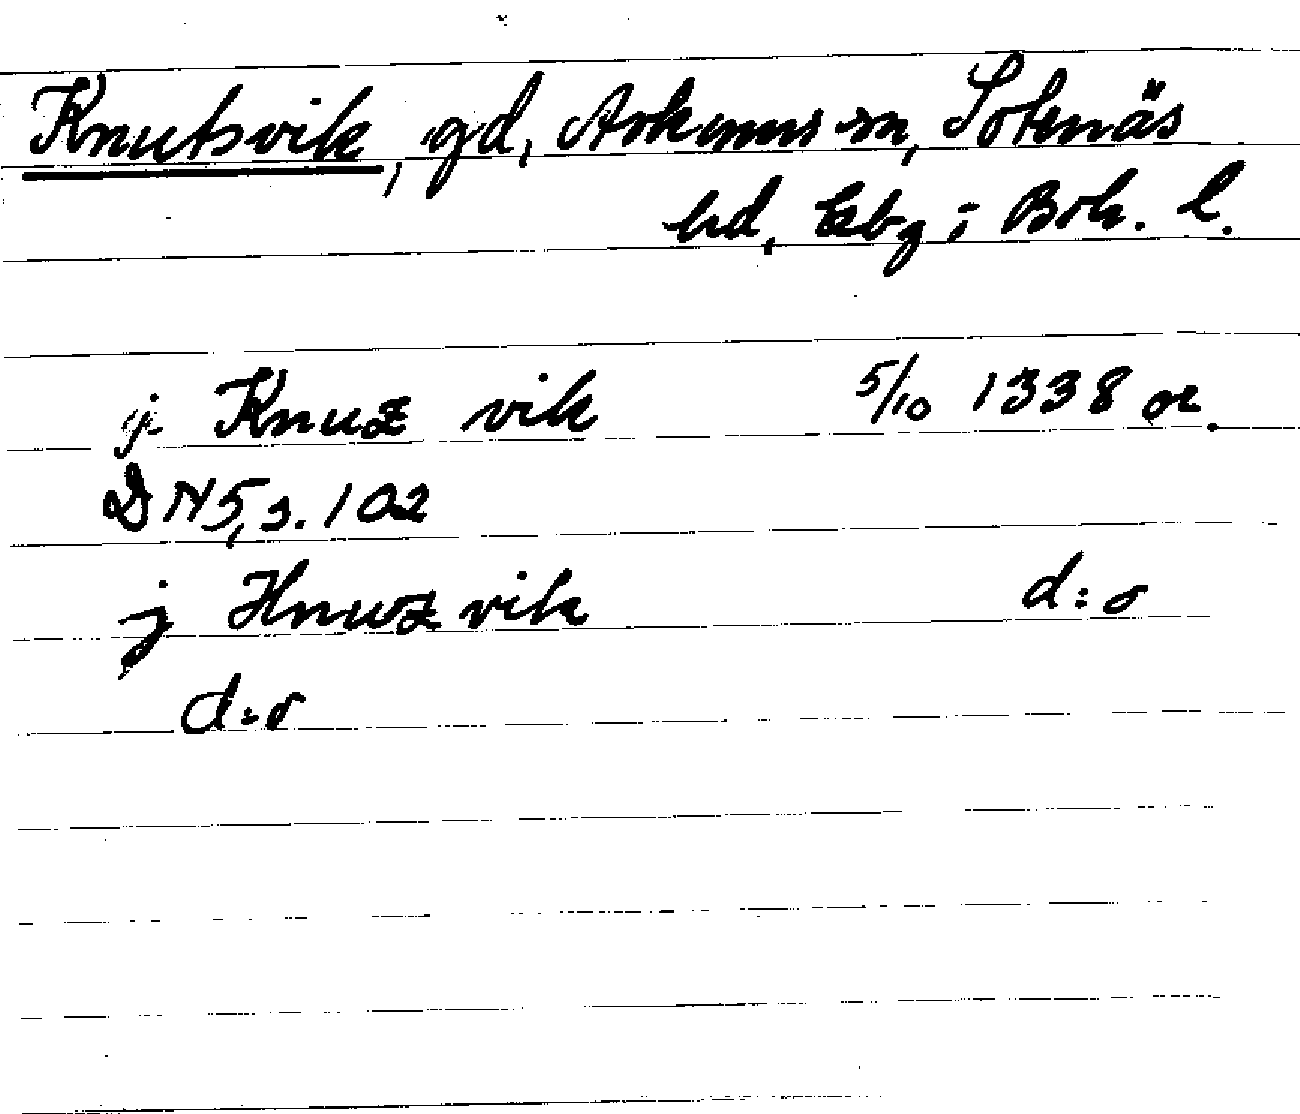 Knutsvik, gd, Askums sn, Sotenäs
hd, Gbg; Boh. l.
j Knuz vik 5/10 1338 or.
DN5, s. 102
j Hnuz vik d:o
d:o